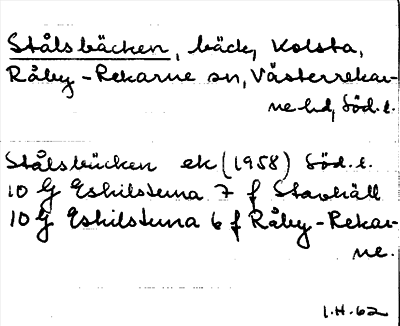 Stålsbäcken, bäck, Kolsta,
Råby-Rekarne sn, Västerrekar-
ne hd, Söd.l.
Stålsbäcken ek (1958) Söd.l.
10 G Eskilstuna 7 f Stavhäll
10 G Eskilstuna 6 f Råby-Rekar-
ne.
I.H.62